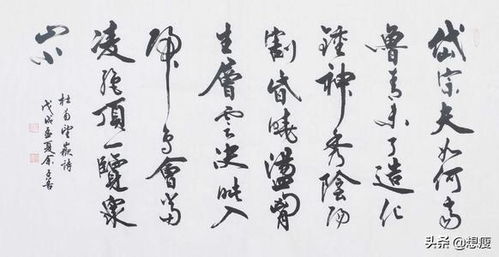 岱宗夫如何齊
魯青未了造化
鍾神秀陰陽
割昏曉盪胸
生層雲決眥入
歸鳥會當
凌絕頂一覽衆
山小
杜甫望嶽詩
戊戌孟夏余
头条 @想瘦